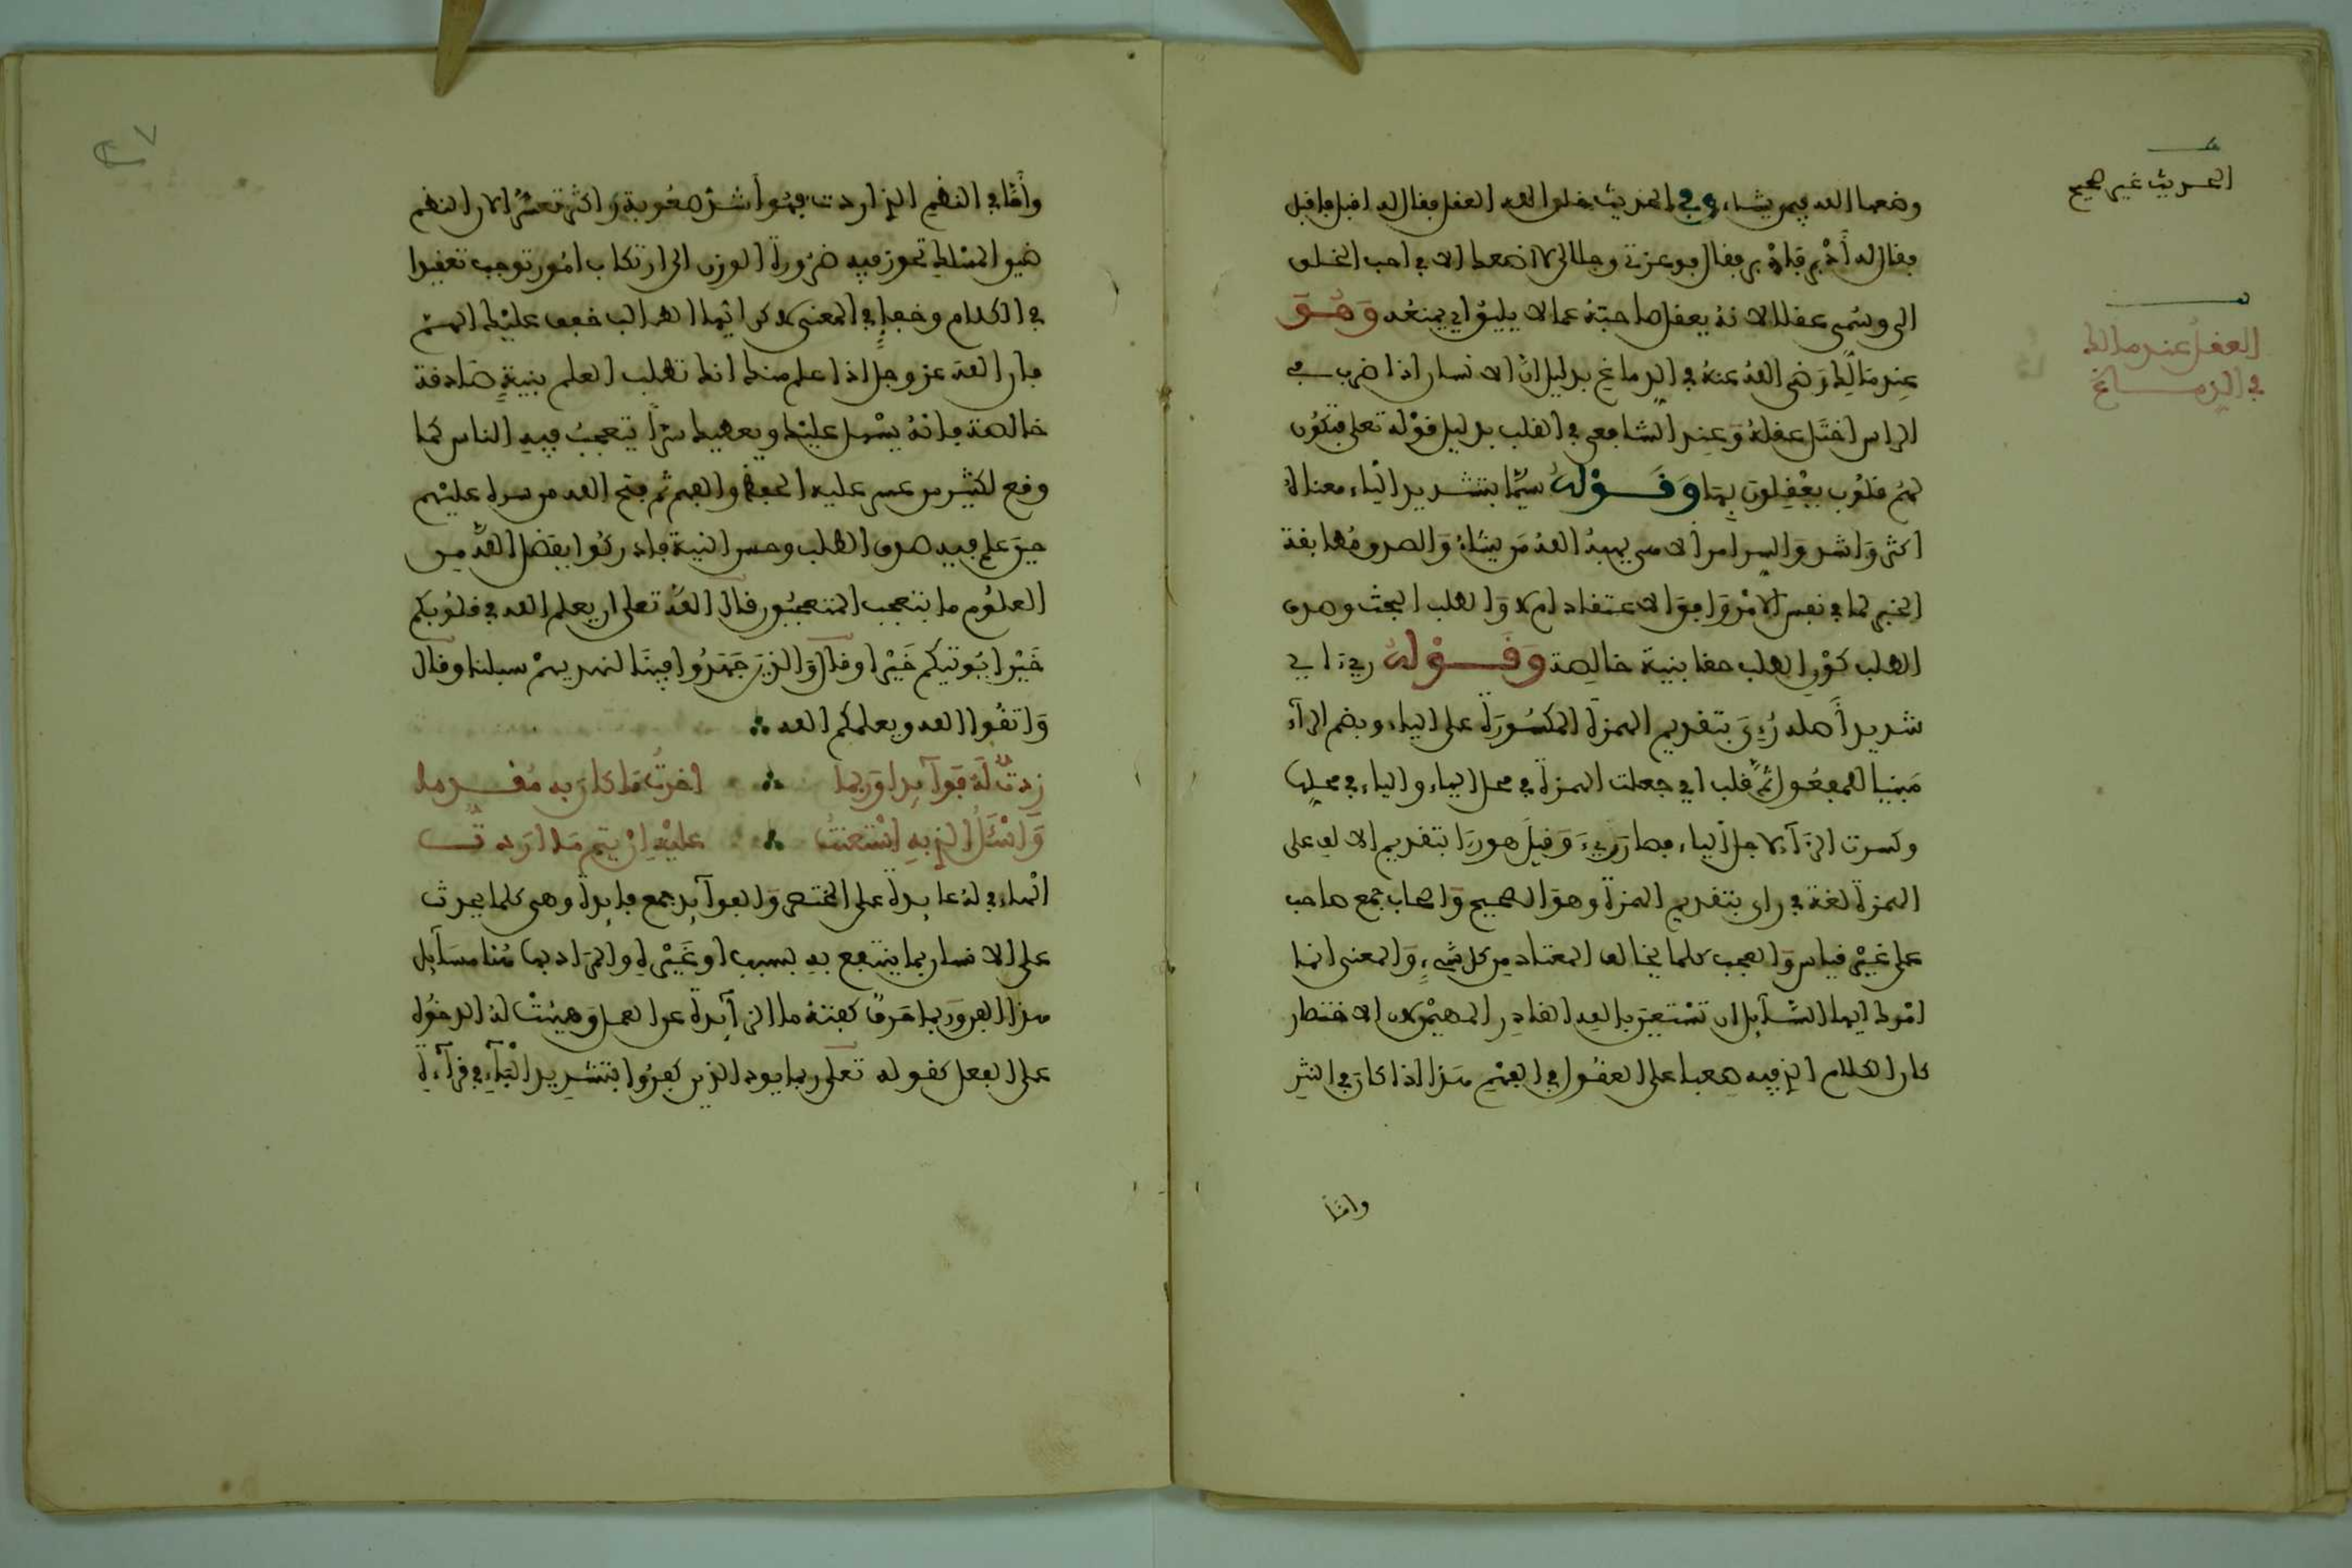 وضعها الله فيمن يشاء وفي الحديث خلق الله العقل فقال له اقبل فاقبل
فقال له أدبر فادبر فقال فوعزتي وجلالي لا اضعك الا في احب الخلق
الي وسمي عقلا لانه يعقل صاحبه عما لا يليق اي يمنعه وَهُوَ
عند مَالك رَضي الله عنه في الدماغ بدليل ان الانسان اذا ضرب في
الراس اختل عقله وَعند الشافعي في القلب بدليل قوله تعلى فتكون
لهم قلوب يعقلون بها وَقَوْلهُ سيّما بتشديد الياء معناه
اكثر وَاشد وَاليسر امر الاهي يهبه الله من يشاء وَالصدق مُطابقة
الخبر لما في نفس الامر وَافق الاعتقاد ام لا وَالطلب البحث وصدق
الطلب كوْن الطلب حقا بنية خالصة وَقَوْلهُ رِيءَ اي
شديد أصله رُءِيَ بتقديم الهمزة المكسورة على الياء وبضم الراء
مبنيا للمفعول ثم قلب اي جعلت الهمزة في محل الياء والياء في محلها
وكسرت الراء لاجل الياء فصار رِيءَ وَقيل هو رِيَا بتقديم الالف على
الهمزة لغة في راى بتقديم الهمزة وهو الصحيح وَاصحاب جمع صاحب
على غيْر قياس وَالعجب كلما يخالف المعتاد من كل شيءٍ وَالمعنى انما
امْرك ايها السّائل ان تستعين بالله القادر المهيمْن لان الاختصار
كان الكلام الذي فيه صعبا على العقول في الفهْم هذا اذا كان في النثرِ
وامّا
الحديث غير صحيح
العقل عند مالك
في الدماغ
٤٧
وأمّا في النظم الذي اردت فهُو أشدّ صعُوبة وَاكثر تعسّرا لان النظم
ضيق المسْلك تحوز فيه ضرُورة الوزن الى ارتكاب امُور توجب تعقيدا
في الكلام وخفاءٍ في المعنى لاكن ايها الطالب خفف عليْك الهمّ
فان الله عز وجل اذا علم منك انك تطلب العلم بنيةٍ صَادقة
خالصة فانهُ يسْهل عليْك ويعطيك سرّا يتعجبُ فيه الناس كما
وقع لكثير من عسر عليه الحفظ والفهم ثم فتح الله من سره عليْهم
حين علم فيه صدق الطلب وحسن النية فادركُوا بفضل اللهِ من
العلوم ما يتعجب المتعجبُون قال اللهُ تعلى ان يعلم الله في قلوبكم
خَيْرا يُوتيكم خَيْرا وقال وَالذين جَهَدُوا فينَا لنهدينهمْ سبلنا وقال
وَاتقُوا الله ويعلمكم الله ∴
زدتُّ لهُ فوآئدا وَربما ∴ اخرتُ مَا كان به مُقدما
وَأسْئلُ الذي بهِ اسْتعنتُ ∴ عليْه ان يتم مَا اردتُّ
الهاء في لهُ عائدة على المختصر وَالفوآئد جمع فائدة وهى كلما يحدث
على الانسان بما ينتفع به بسبب او غَيْره والمَراد بها هُنا مسَآئل
هذا الفن وَربما حَرف كفته ما الزآئدة عن العمل وَهيئتْ له الدخول
على الفعل كقوله تعلى ربما يود الذين كفرُوا بتشديد البَآءِ في قرآءة